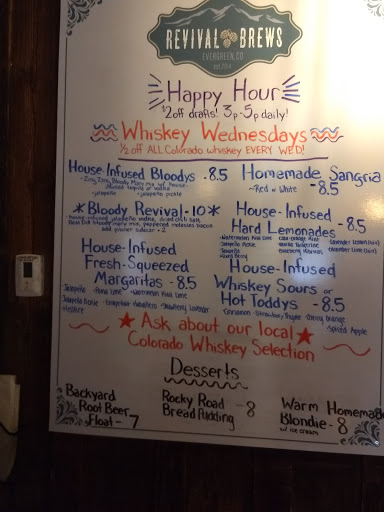 REVIVAL BREWS
EVERGREEN, CO
Happy Hour
1/2 off drafts! 3p-5p daily!
Whiskey Wednesdays
1/2 off ALL Colorado whiskey EVERY WED!
House-Infused Bloodys - 8.5
- Zing Zang Bloody Mary mix w/ house-
infused tequila or vodka
- jalapeño - jalapeño pickle
Homemade Sangria
- Red or White - 8.5
*Bloody Revival - 10*
House-Infused
Hard Lemonades - 8.5
House-Infused
Fresh-Squeezed
Margaritas - 8.5
Jalapeño
House-Infused
Whiskey Sours or
Hot Toddys - 8.5
Cinnamon · Strawberry Thyme · Cherry Orange
· Spiced Apple
★ Ask about our local ★
Colorado Whiskey Selection
Desserts
Backyard
Root Beer
Float - 7
Rocky Road
Bread Pudding - 8
Warm Homema
Blondie - 8
w/ ice cream